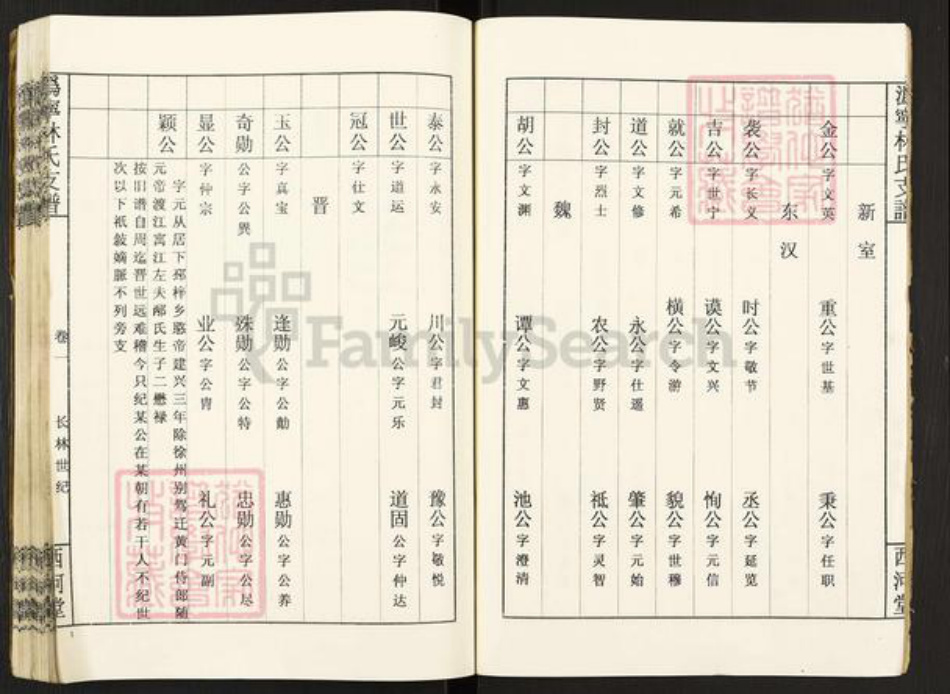 林氏支谱
西河堂
新室
金公 字文英 重公 字世基 秉公 字任职
东汉
袭公 字长义 时公 字敬节 丞公 字延览
吉公 字世宁 谟公 字文兴 恂公 字元信
就公 字元希 横公 字令游 貌公 字世穆
道公 字文修 永公 字仕遥 肇公 字元始
封公 字烈士 农公 字野贤 祗公 字灵智
魏
胡公 字文渊 谭公 字文惠 池公 字澄清
泰公 字永安 川公 字君封 豫公 字敬悦
世公 字道运 元峻公 字元乐 道固公 字仲达
冠公 字仕文
晋
玉公 字真宝 逢勋公 字公勣 惠勋公 字公养
奇勋公 字公異 殊勋公 字公特 忠勋公 字公尽
显公 字仲宗 业公 字公胄 礼公 字元副
颖公 字元从居下邳梓乡愍帝建兴三年除徐州别驾迁黄门侍郎随
元帝渡江寓江左夫郗氏生子二懋禄
按旧谱自周迄晋世远难稽今只纪某公在某朝有若干人不纪世
次以下祇敍嫡脈不列旁支
林氏支谱
卷一
长林世纪
西河堂
FamilySearch